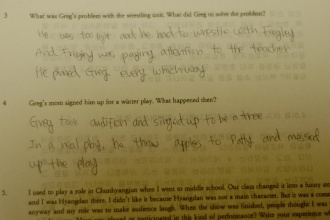 3 What was Greg's problem with the wrestling unit. What did Greg do to solve the problem?
He was too light and he had to wrestle with Fregley
And Fregley was paying attention to the teacher
He pinned Greg every which way
4 Greg's mom signed him up for a winter play. What happened then?
Greg took audition and signed up to be a tree
In a real play, he threw apples to Patty and messed
up the play
5. I used to play a role in Chunhyangjun when I went to middle school. Our class changed it into a funny
and I was Hyangdan there. I didn't like it because Hyangdan was not a main character. But it was a
anyway and my role was to make audience laugh. When the show was finished, people thought I was
participated in this kind of performance? Write your experience